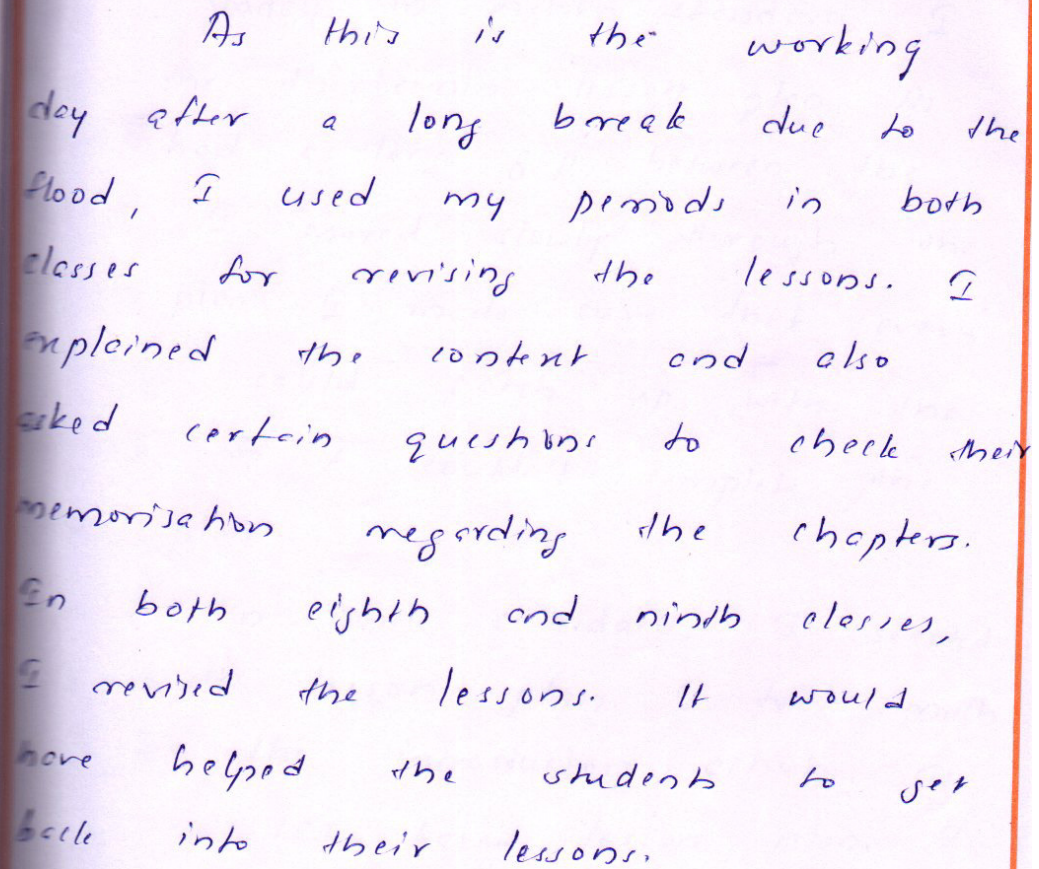 As this is the working
day after a long break due to the
flood, I used my periods in both
classes for revising the lessons. I
explained the content and also
asked certain questions to check their
memorisation regarding the chapters.
In both eighth and ninth classes,
I revised the lessons. It would
have helped the students to get
back into their lessons.